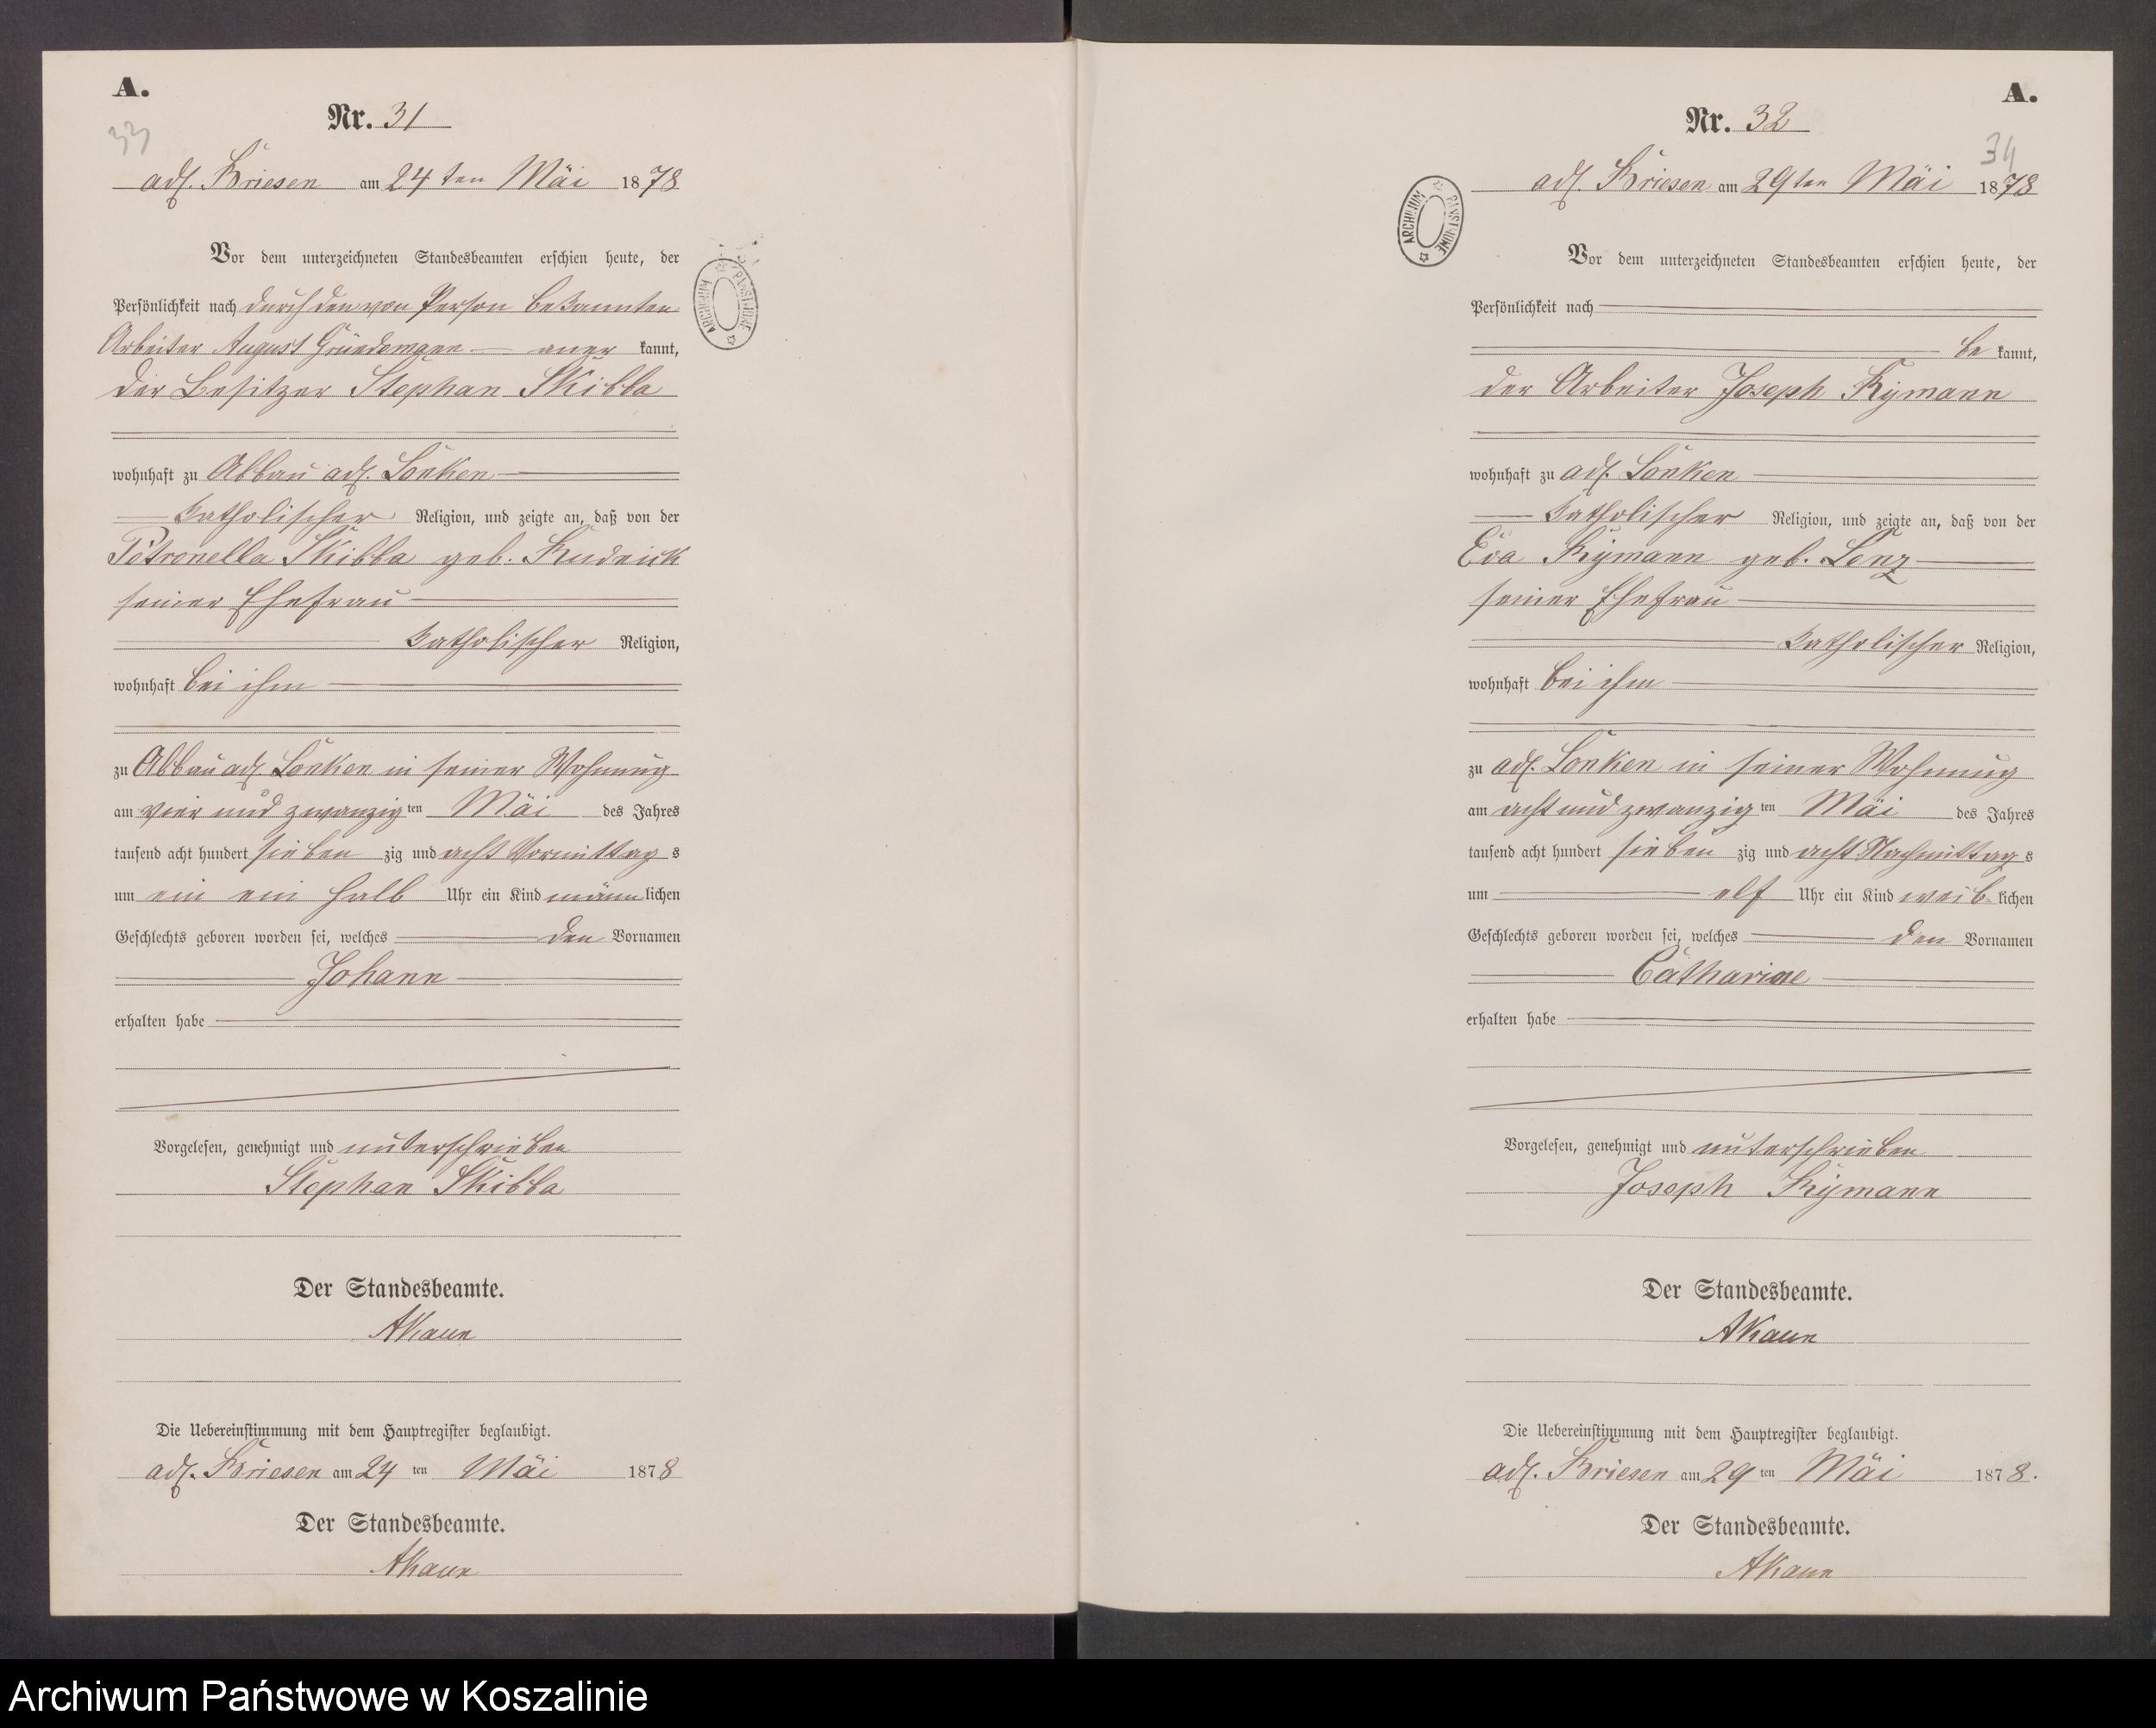 A.
33
Nr. 31
adl. Briesen am 24ten Mai 1878
Vor dem unterzeichneten Standesbeamten erschien heute, der
Persönlichkeit nach durch den von Person bekannten
Arbeiter August Gründemann aner kannt,
der Besitzer Stephan Skibba
wohnhaft zu Abbau adl. Lonken
katholischer Religion, und zeigte an, daß von der
Petronella Skibba geb. Rudnick
seiner Ehefrau
katholischer Religion,
wohnhaft bei ihm
zu Abbau adl. Lonken in seiner Wohnung
am vier und zwanzig ten Mai des Jahres
tausend acht hundert sieben zig und acht Vormittag s
um ein ein halb Uhr ein Kind männ lichen
Geschlechts geboren worden sei, welches den Vornamen
Johann
erhalten habe
Vorgelesen, genehmigt und unterschrieben
Stephan Skibba
Der Standesbeamte.
Die Uebereinstimmung mit dem Hauptregister beglaubigt.
adl. Briesen am 24 ten Mai 1878
Der Standesbeamte.
ARCHIWUM PAŃSTWOWE
A.
34
Nr. 32
adl. Briesen am 29ten Mai 1878
Vor dem unterzeichneten Standesbeamten erschien heute, der
Persönlichkeit nach
be kannt,
der Arbeiter Joseph Rymann
wohnhaft zu adl. Lonken
katholischer Religion, und zeigte an, daß von der
Eva Rymann geb. Lenz
seiner Ehefrau
katholischer Religion,
wohnhaft bei ihm
zu adl. Lonken in seiner Wohnung
am acht und zwanzig ten Mai des Jahres
tausend acht hundert sieben zig und acht Nachmittag s
um elf Uhr ein Kind weib lichen
Geschlechts geboren worden sei, welches den Vornamen
Catharine
erhalten habe
Vorgelesen, genehmigt und unterschrieben
Joseph Rymann
Der Standesbeamte.
Die Uebereinstimmung mit dem Hauptregister beglaubigt.
adl. Briesen am 29 ten Mai 1878.
Der Standesbeamte.
ARCHIWUM PAŃSTWOWE
Archiwum Państwowe w Koszalinie